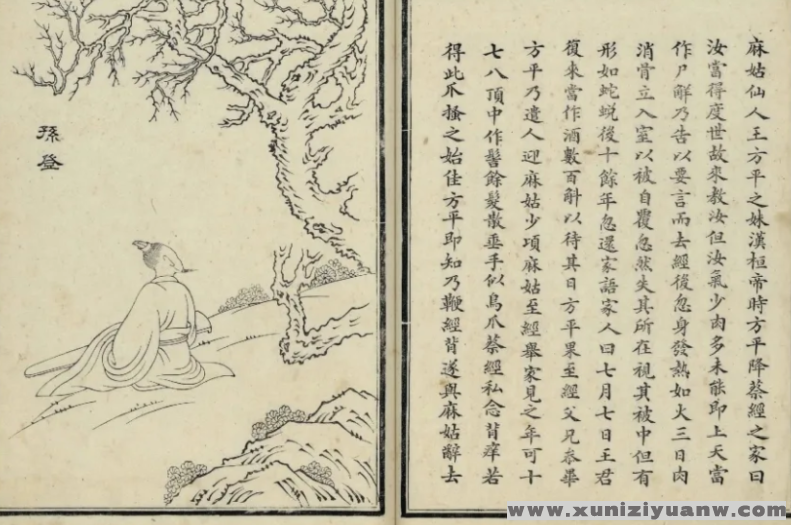 麻姑仙人王方平之妹漢桓帝時方平降蔡經之家曰
汝當得度世故來教汝但汝氣少肉多未能即上天當
作尸解乃告以要言而去經後忽身發熱如火三日肉
消骨立入室以被自覆忽然失其所在視其被中但有
形如蛇蛻後十餘年忽還家語家人曰七月七日王君
復來當作酒數百斛以待其日方平果至經父兄叅畢
方平乃遣人迎麻姑少頃麻姑至經舉家見之年可十
七八頂中作髻餘髮散垂手似鳥爪蔡經私念背痒若
得此爪搔之始佳方平即知乃鞭經背遂與麻姑辭去
孫登
www.xuniziyuanw.com